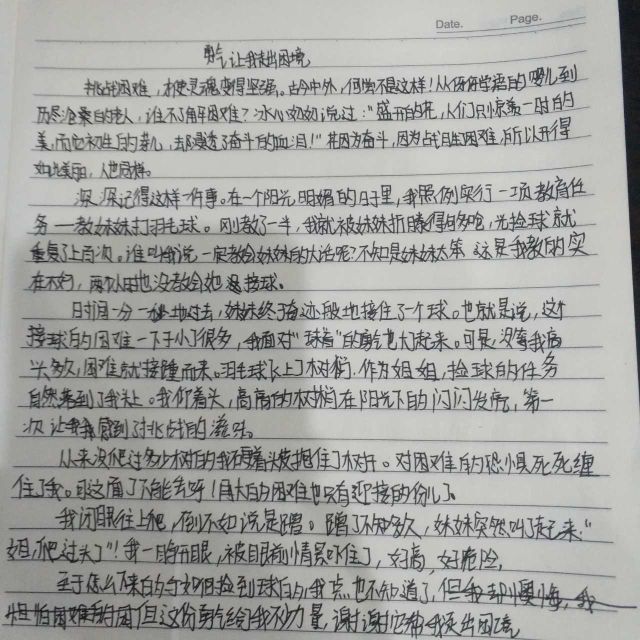 Date. Page.
勇气让我走出困境
挑战困难,才使灵魂变得坚强。古今中外,何尝不是这样!从牙牙学语的婴儿到
历尽沧桑的老人,谁不了解困难?冰心奶奶说过:“盛开的花,人们只惊羡一时的
美,而它初生的芽儿,却浸透了奋斗的血泪!”花因为奋斗,因为战胜困难,所以开得
如此美丽,人也同样。
深深记得这样一件事。在一个阳光明媚的日子里,我照例实行一项教育任
务——教妹妹打羽毛球。刚教了一半,我就被妹妹折磨得够呛,光捡球就
重复了上百次。谁叫我说一定教会妹妹的大话呢?不知是妹妹太笨 还是我教的实
在不行,两个小时也没教会她接球。
时间一分一秒地过去,妹妹终于奇迹般地接住了个球。也就是说,这个
接球的困难一下子小了很多,我面对“球盲”的勇气也大起来。可是,没等我高
兴多久,困难就接踵而来。羽毛球飞上了树梢,作为姐姐,捡球的任务
自然落到了我头上。我仰着头,高高的树梢在阳光下的闪闪发亮,第一
次让我感到了挑战的滋味。
从来没爬过多少树的我硬着头皮抱住了树干。对困难的恐惧死死缠
住了我。可这面子不能丢呀!再大的困难也只有迎接的份儿了。
我闭眼往上爬,倒不如说是蹭。蹭了不知多久,妹妹突然叫了起来:“
姐,爬过头了”!我一睁开眼,被眼前情景吓住了,好高,好危险。
至于怎么下来的与如何捡到球的,我点也不知道了,但我却不懊悔,我
但这份勇气给了我不少力量,谢谢它帮我走出困境。